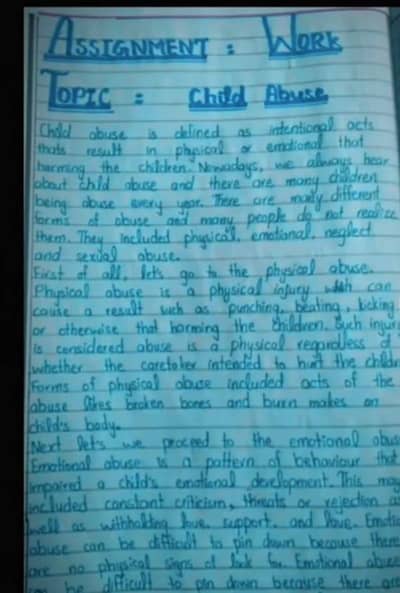 ASSIGNMENT : WORK
TOPIC : Child Abuse
Child abuse is defined as intentional acts
thats result in physical or emotional that
harming the children. Nowadays, we always hear
about child abuse and there are many children
being abuse every year. There are many different
forms of abuse and many people do not realize
them. They included physical, emotional, neglect
and sexual abuse.
First of all, let's go to the physical abuse.
Physical abuse is a physical injury which can
cause a result such as punching, beating, kicking
or otherwise that harming the children. Such injury
is considered abuse is a physical regardless of
whether the caretaker intended to hurt the child
Forms of physical abuse included acts of the
abuse likes broken bones and burn makes on
child's body.
Next let's we proceed to the emotional abuse
Emotional abuse is a pattern of behaviour that
impaired a child's emotional development. This may
included constant criticism, threats or rejection as
well as withholding love, support, and love. Emotio
abuse can be difficult to pin down because there
are no physical signs of look for. Emotional abuse
be difficult to pin down because there are